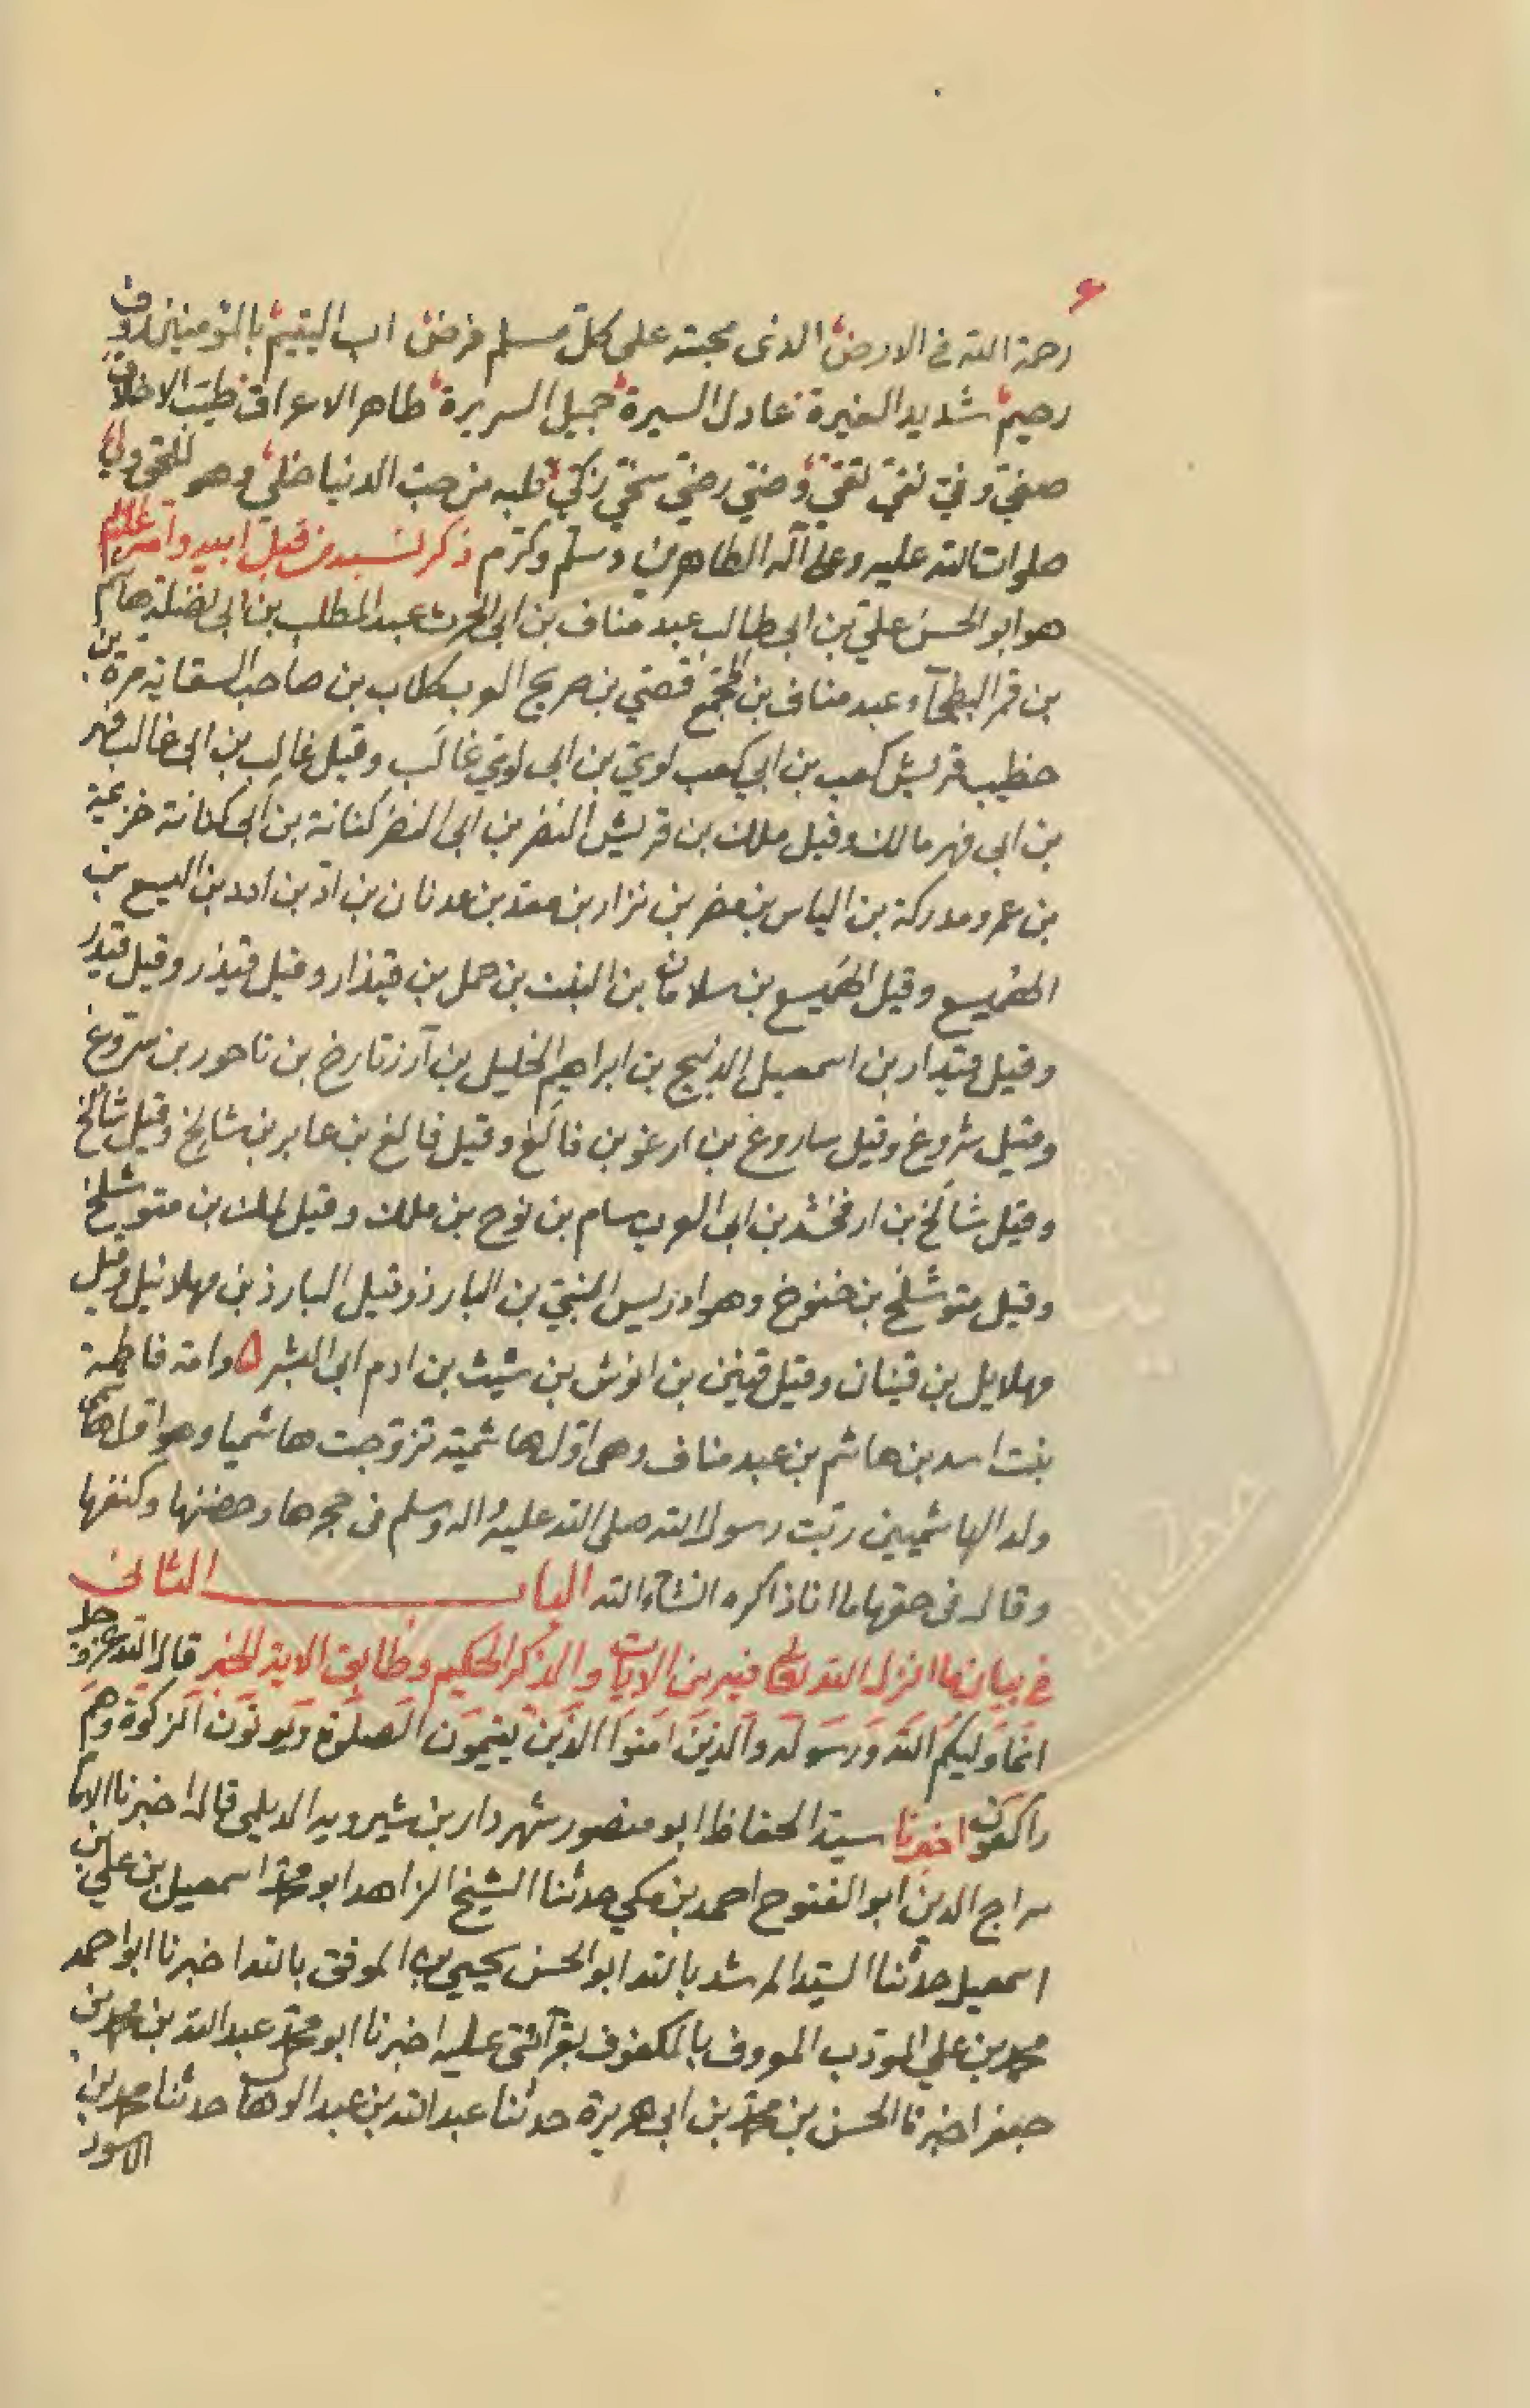 ۶
رحمة الله في الارض الذى محبته على كل مسلم فرض اب اليتيم بالمؤمنين رؤف
رحيم شديد الغيرة عادل السيرة جميل السريرة طاهر الاعراق طيب الاخلاق
صفيّ وفيّ نقيّ تقيّ وصيّ رضيّ سخيّ زكيّ قلبه من حب الدنيا خليّ وهو للحق وليّ
صلوات الله عليه وعلى آله الطاهرين وسلم وكرّم ذكر نسبه من قبل ابيه وامه عليهم
هو ابو الحسن علي بن ابى طالب عبد مناف بن ابى الحرث عبد المطلب بن ابى نضلة هاشم
بن قمر البطحآء عبد مناف بن المجمع قصيّ بن صريح العرب كلاب بن صاحب السقاية مرة بن
خطيب قريش كعب بن ابي كعب لويّ بن ابى لويّ غالب وقيل غالب بن ابى غالب فهر
بن ابى فهر مالك وقيل ملك بن قريش النضر بن ابى النضر كنانة بن ابى كنانة خزيمة
بن عمرو مدركة بن الياس بن مضر بن نزار بن معد بن عدنان بن ادّ بن ادد بن اليسع بن
الهميسع وقيل الهميسع بن سلامان بن النبت بن حمل بن قيذار وقيل قيذر وقيل قيدر
وقيل قيدار بن اسمعيل الذبيح بن ابراهيم الخليل بن آزر تارخ بن ناحور بن سروغ
وقيل شروغ وقيل ساروغ بن ارغو بن فالغ وقيل فالغ بن عابر بن شالخ وقيل شالخ
وقيل شالخ بن ارفخشد بن ابى العرب سام بن نوح بن ملك وقيل لمك بن متوشلخ
وقيل متوشلخ بن خنوخ وهو ادريس النبيّ بن البارذ وقيل اليارد بن مهلائيل وقيل
مهلايل بن قينان وقيل قينن بن انوش بن شيث بن ادم ابى البشر ٥ وامه فاطمة
بنت اسد بن هاشم بن عبد مناف وهى اوّل هاشمية تزوّجت هاشميا وهو اوّل هاشمى
ولد الهاشميين ربّت رسول الله صلى الله عليه واله وسلم فى حجرها وحضنها وكنفها
وقال فى حقها ما انا ذاكره انشآء الله الباب الثانى
في بيان ما انزل الله تعالى فيه من الايات والذكر الحكيم وطابق الاية الخبر قال الله عز وجل
انما وليكم الله ورسوله والذين امنوا الذين يقيمون الصلوة ويؤتون الزكوة وهم
راكعون اخبرنا سيد الحفاظ ابو منصور شهردار بن شيرويه الديلمى قال اخبرنا الامام
سراج الدين ابو الفتوح احمد بن مكي حدثنا الشيخ الزاهد ابو محمد اسمعيل بن علي بن
اسمعيل حدثنا السيد المرشد بالله ابو الحسن يحيى بن الموفق بالله اخبرنا ابو احمد
محمد بن علي المؤدب المعروف بالمكفوف بقرآئتى عليه اخبرنا ابو محمد عبد الله بن محمد بن
جعفر اخبرنا الحسن بن محمد بن ابى هريرة حدثنا عبد الله بن عبد الوهاب حدثنا محمد بن
الاسود